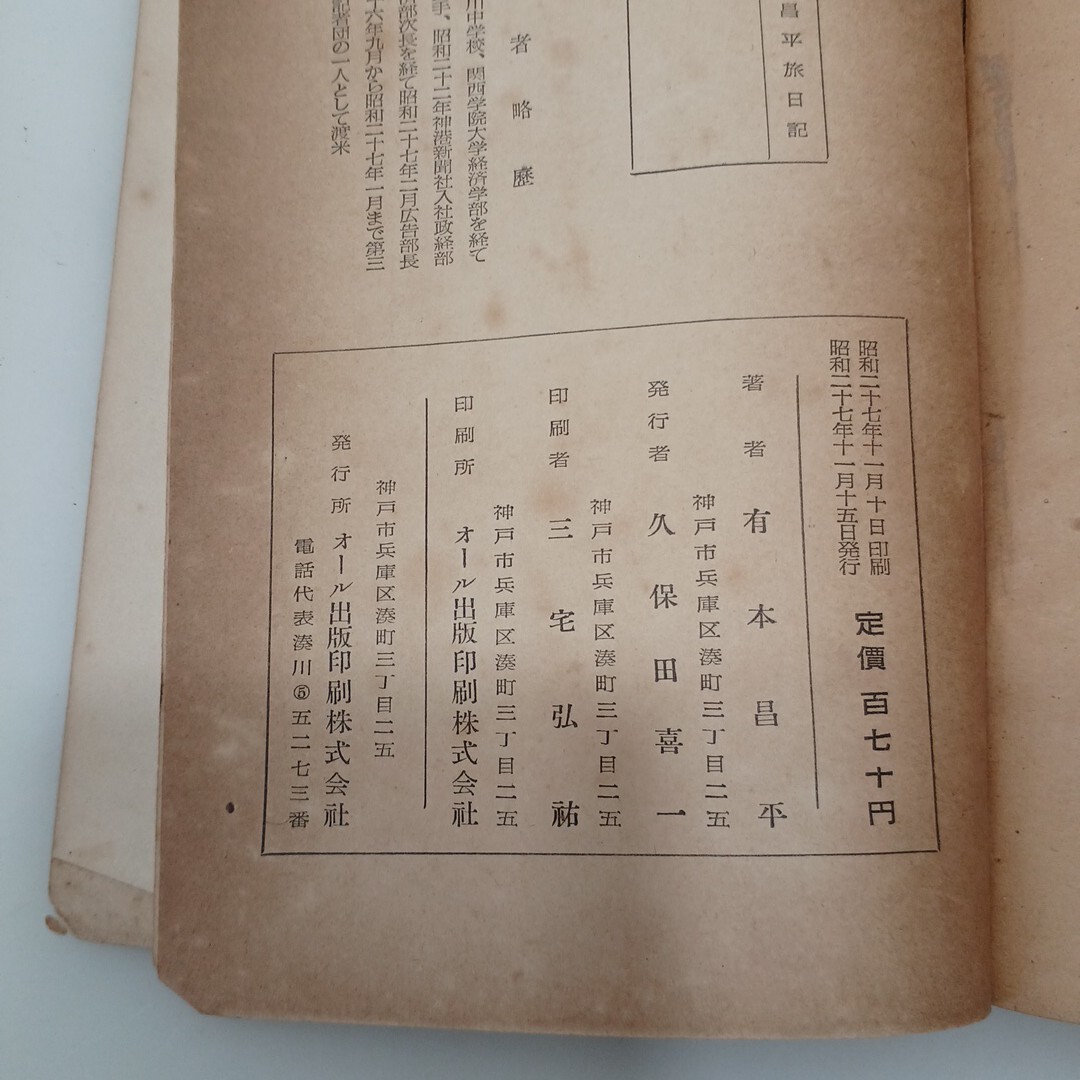 昌平旅日記
者略歴
川中学校、関西学院大学経済学部を経て
手、昭和二十二年神港新聞社入社政経部
部次長を経て昭和二十七年二月広告部長
十六年九月から昭和二十七年一月まで第三
記者団の一人として渡米
昭和二十七年十一月十日印刷
昭和二十七年十一月十五日発行
定價百七十円
著者 有本昌平
神戸市兵庫区湊町三丁目二五
発行者 久保田喜一
神戸市兵庫区湊町三丁目二五
印刷者 三宅弘祐
神戸市兵庫区湊町三丁目二五
印刷所 オール出版印刷株式会社
神戸市兵庫区湊町三丁目二五
発行所 オール出版印刷株式会社
電話代表湊川⑤五二七三番